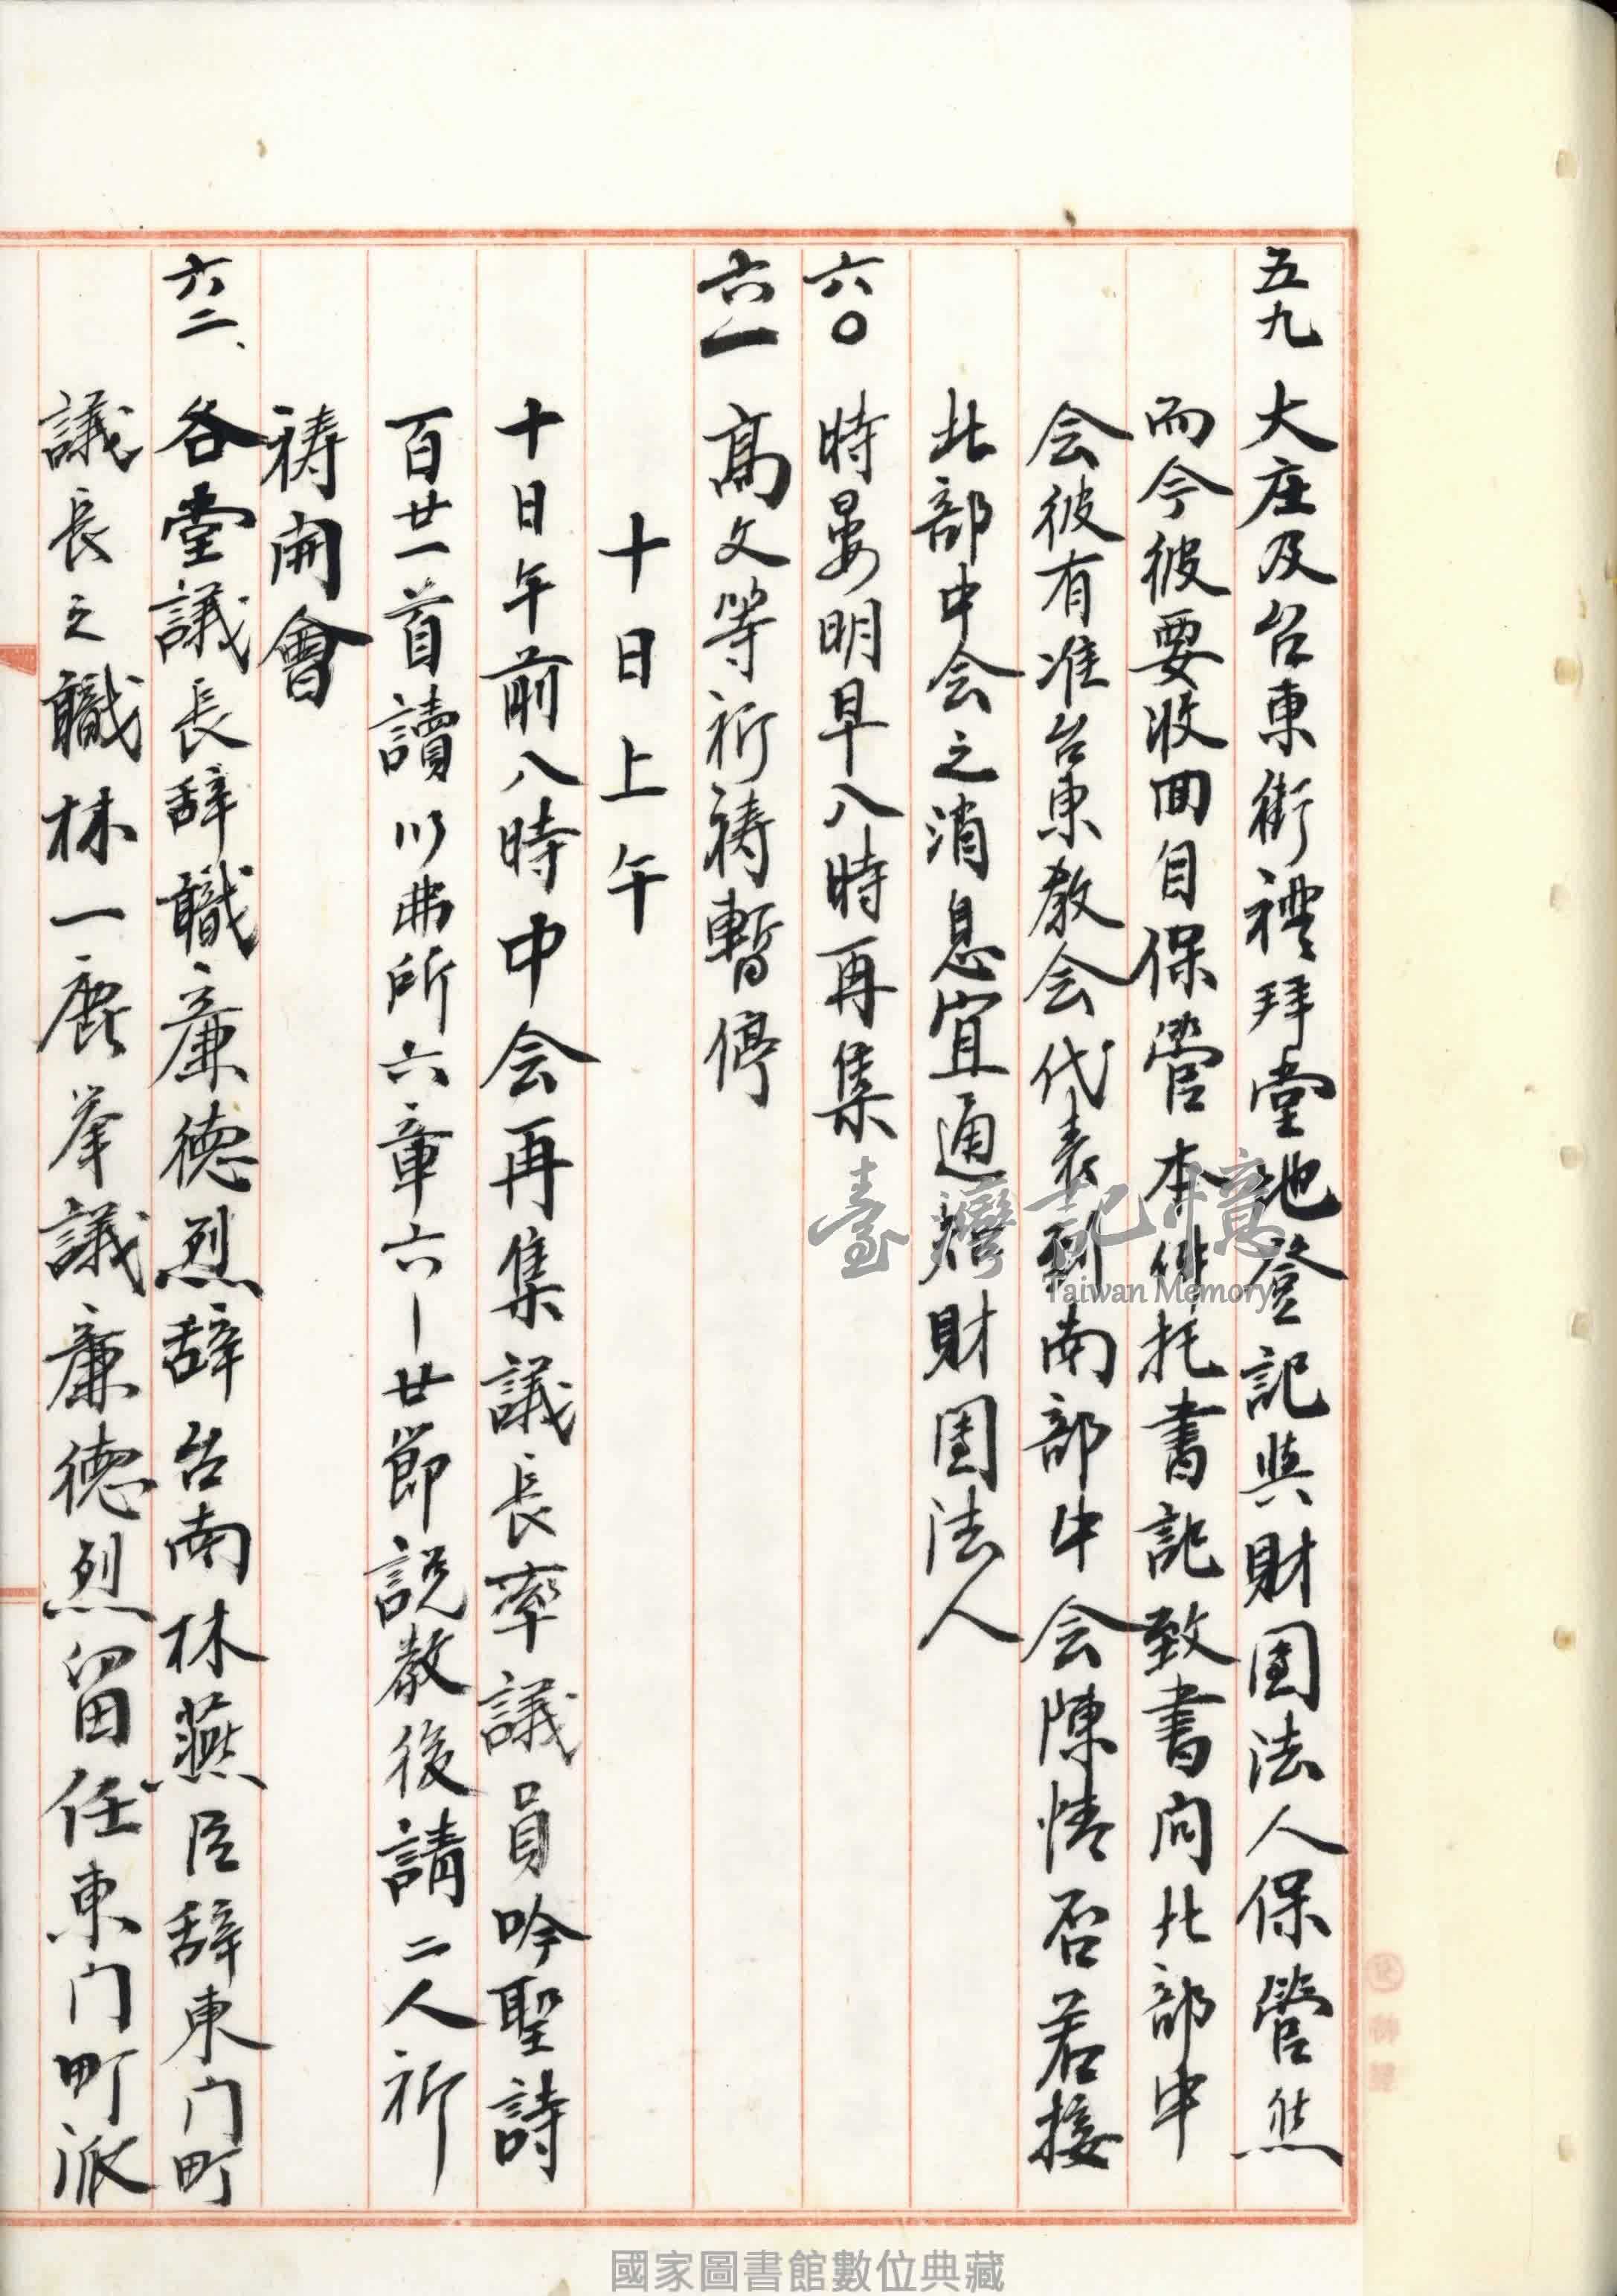 五九 大庄及台東街禮拜堂地登記與財団法人保管然
而今彼要收回自保管本 托書記致書向北部中
会彼有准台東教会代表到南部中会陳情否若接
北部中会之消息宜通 財団法人
六〇 時晏明早八時再集
六一 高文等祈禱暫停
十日上午
十日午前八時中会再集議長率議員吟聖詩
百廿一首讀以弗所六章六—廿節説教後請二人祈
禱開會
六二、各堂議長辞職廉德烈辞台南林燕臣辞東门町
議長之職林一鹿举議廉德烈留任東门町派
臺灣記憶
Taiwan Memory
國家圖書館數位典藏